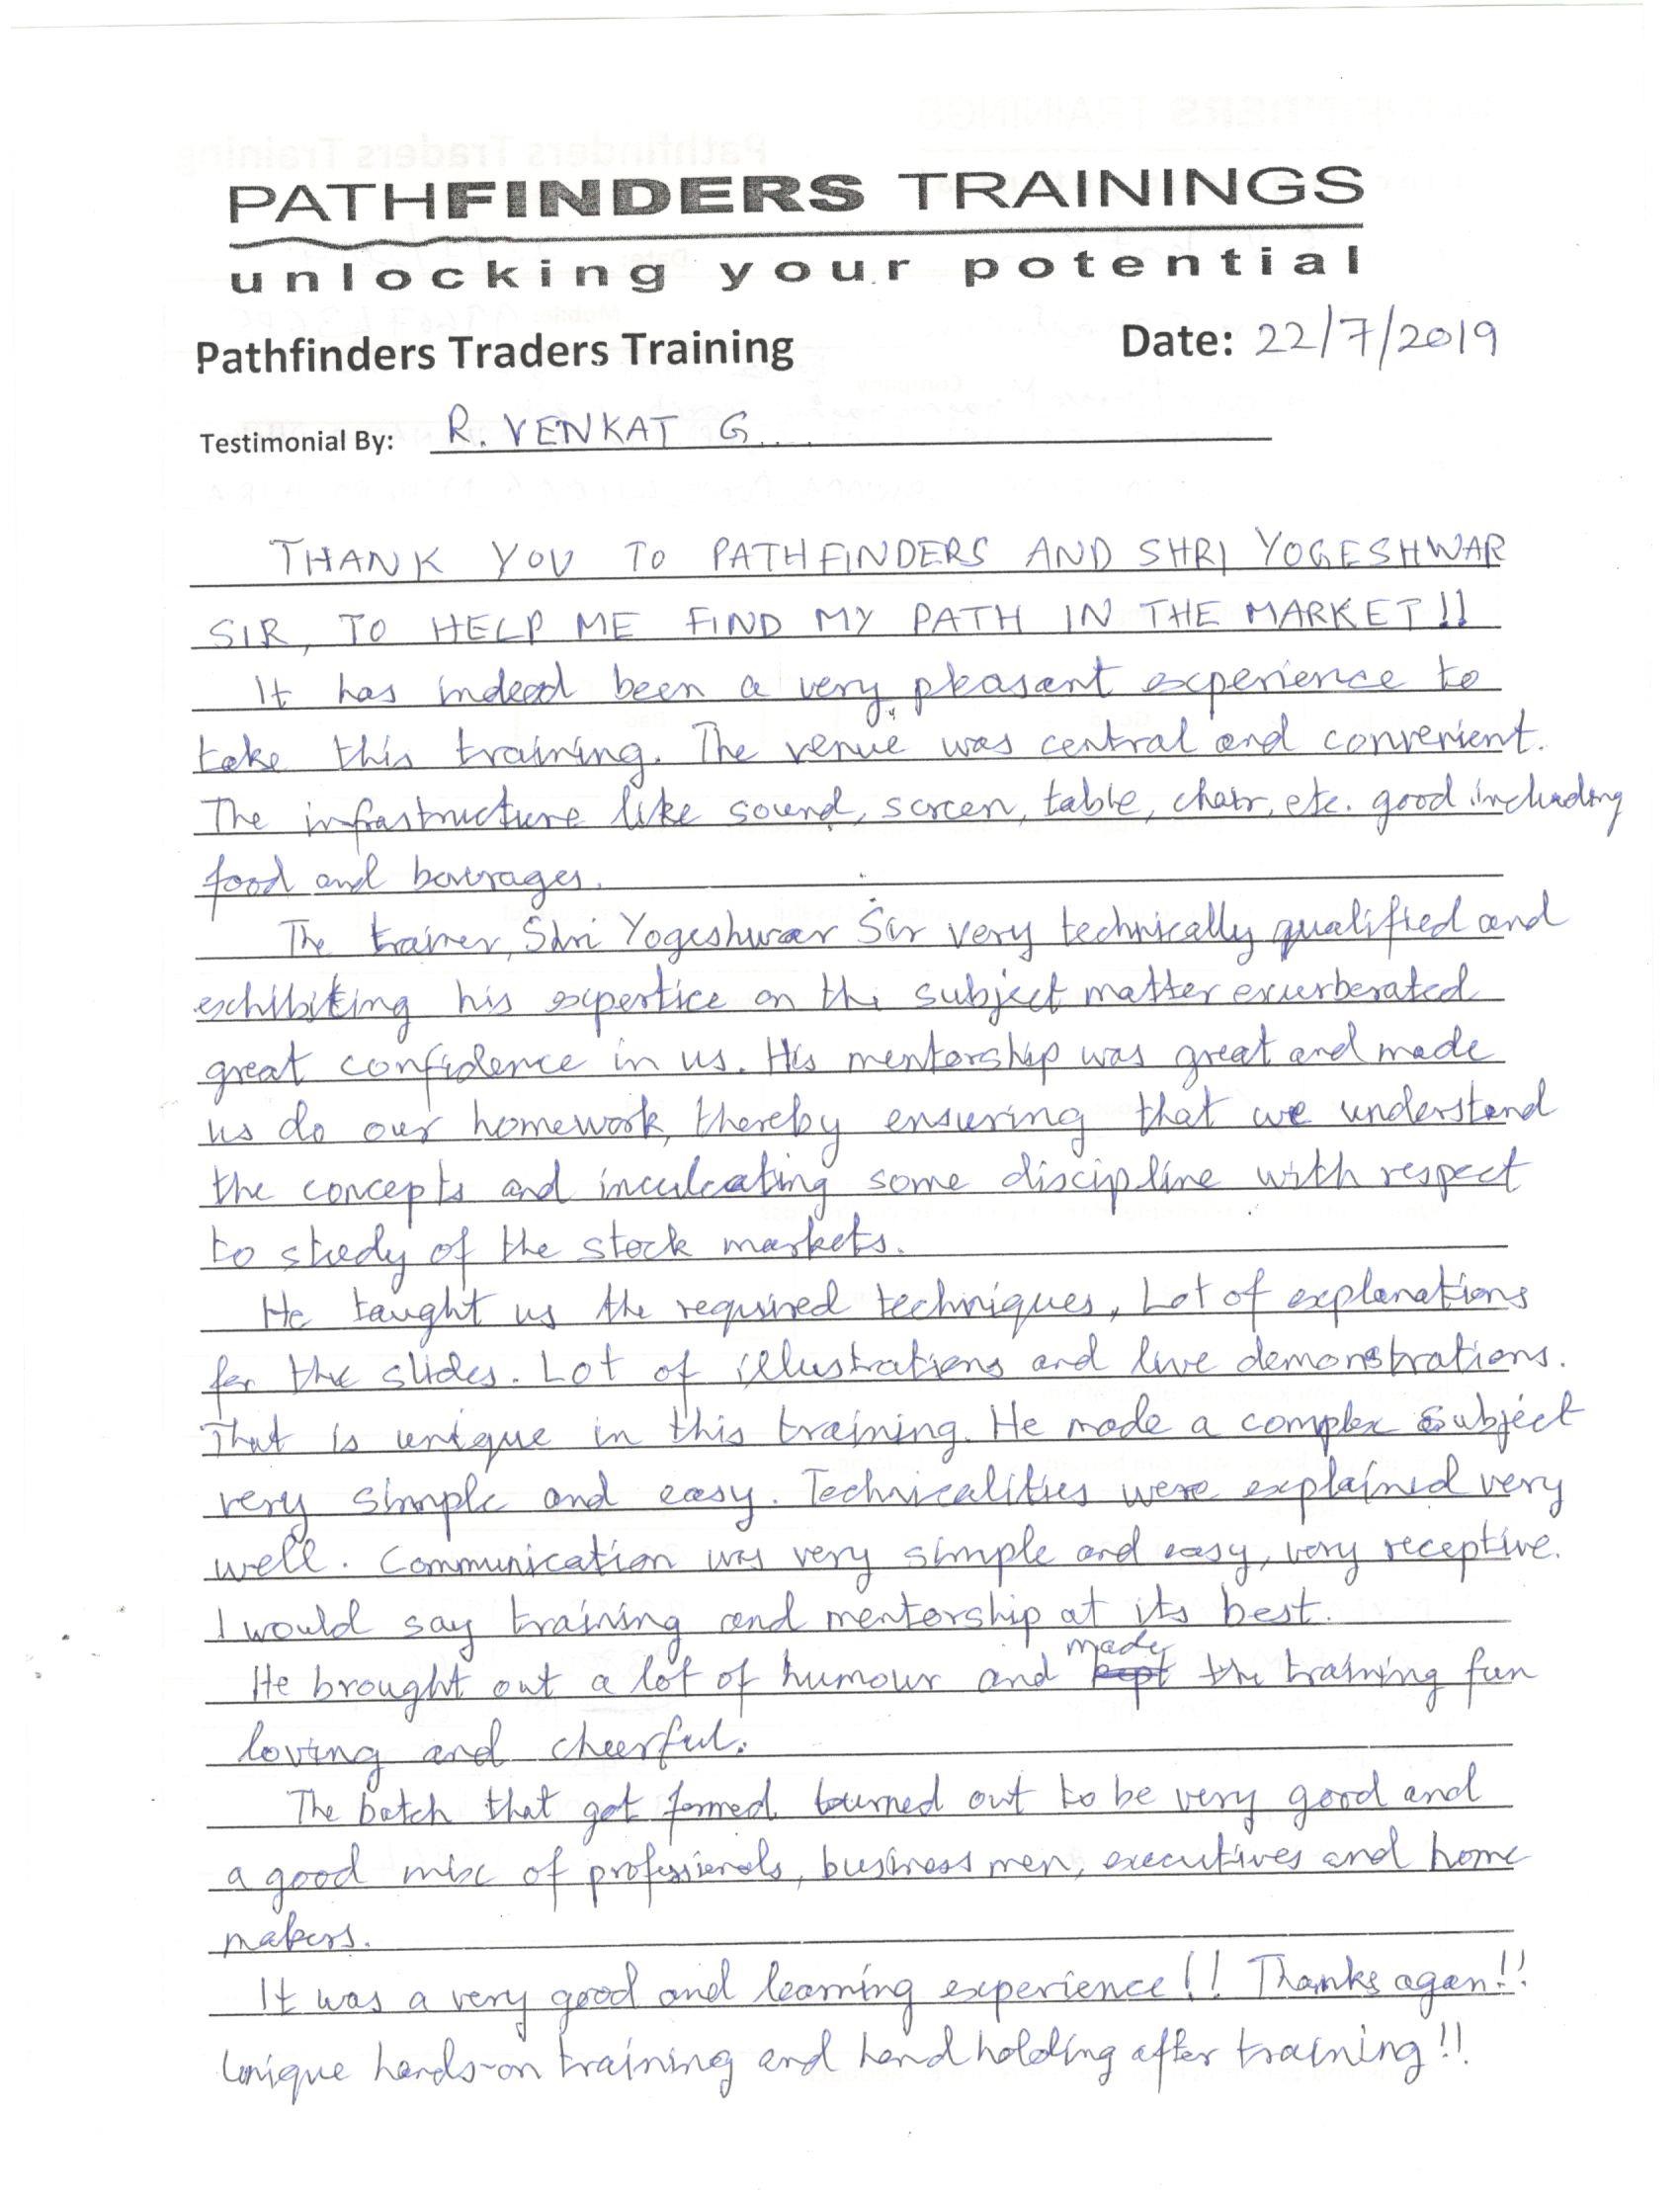 PATHFINDERS TRAININGS
unlocking your potential
Pathfinders Traders Training Date: 22/7/2019
Testimonial By: R. VENKAT G....
THANK YOU TO PATHFINDERS AND SHRI YOGESHWAR
SIR, TO HELP ME FIND MY PATH IN THE MARKET!!
It has indeed been a very pleasant experience to
take this training. The venue was central and convenient.
The infrastructure like sound, screen, table, chair, etc. good including
food and beverages.
The trainer, Shri Yogeshwar Sir very technically qualified and
exhibiting his expertice on the subject matter exurberated
great confidence in us. His mentorship was great and made
us do our homework, thereby ensuring that we understand
the concepts and inculcating some discipline with respect
to study of the stock markets.
He taught us the required techniques, Lot of explanations
for the slides. Lot of illustrations and live demonstrations.
That is unique in this training. He made a complex subject
very simple and easy. Technicalities were explained very
well. Communication was very simple and easy, very receptive.
I would say training and mentorship at its best.
He brought out a lot of humour and kept made the training fun
loving and cheerful.
The batch that got formed tourned out to be very good and
a good mix of professionals, business men, executives and home
makers.
It was a very good and learning experience!! Thanks again!!
Unique hands-on training and hand holding after training!!